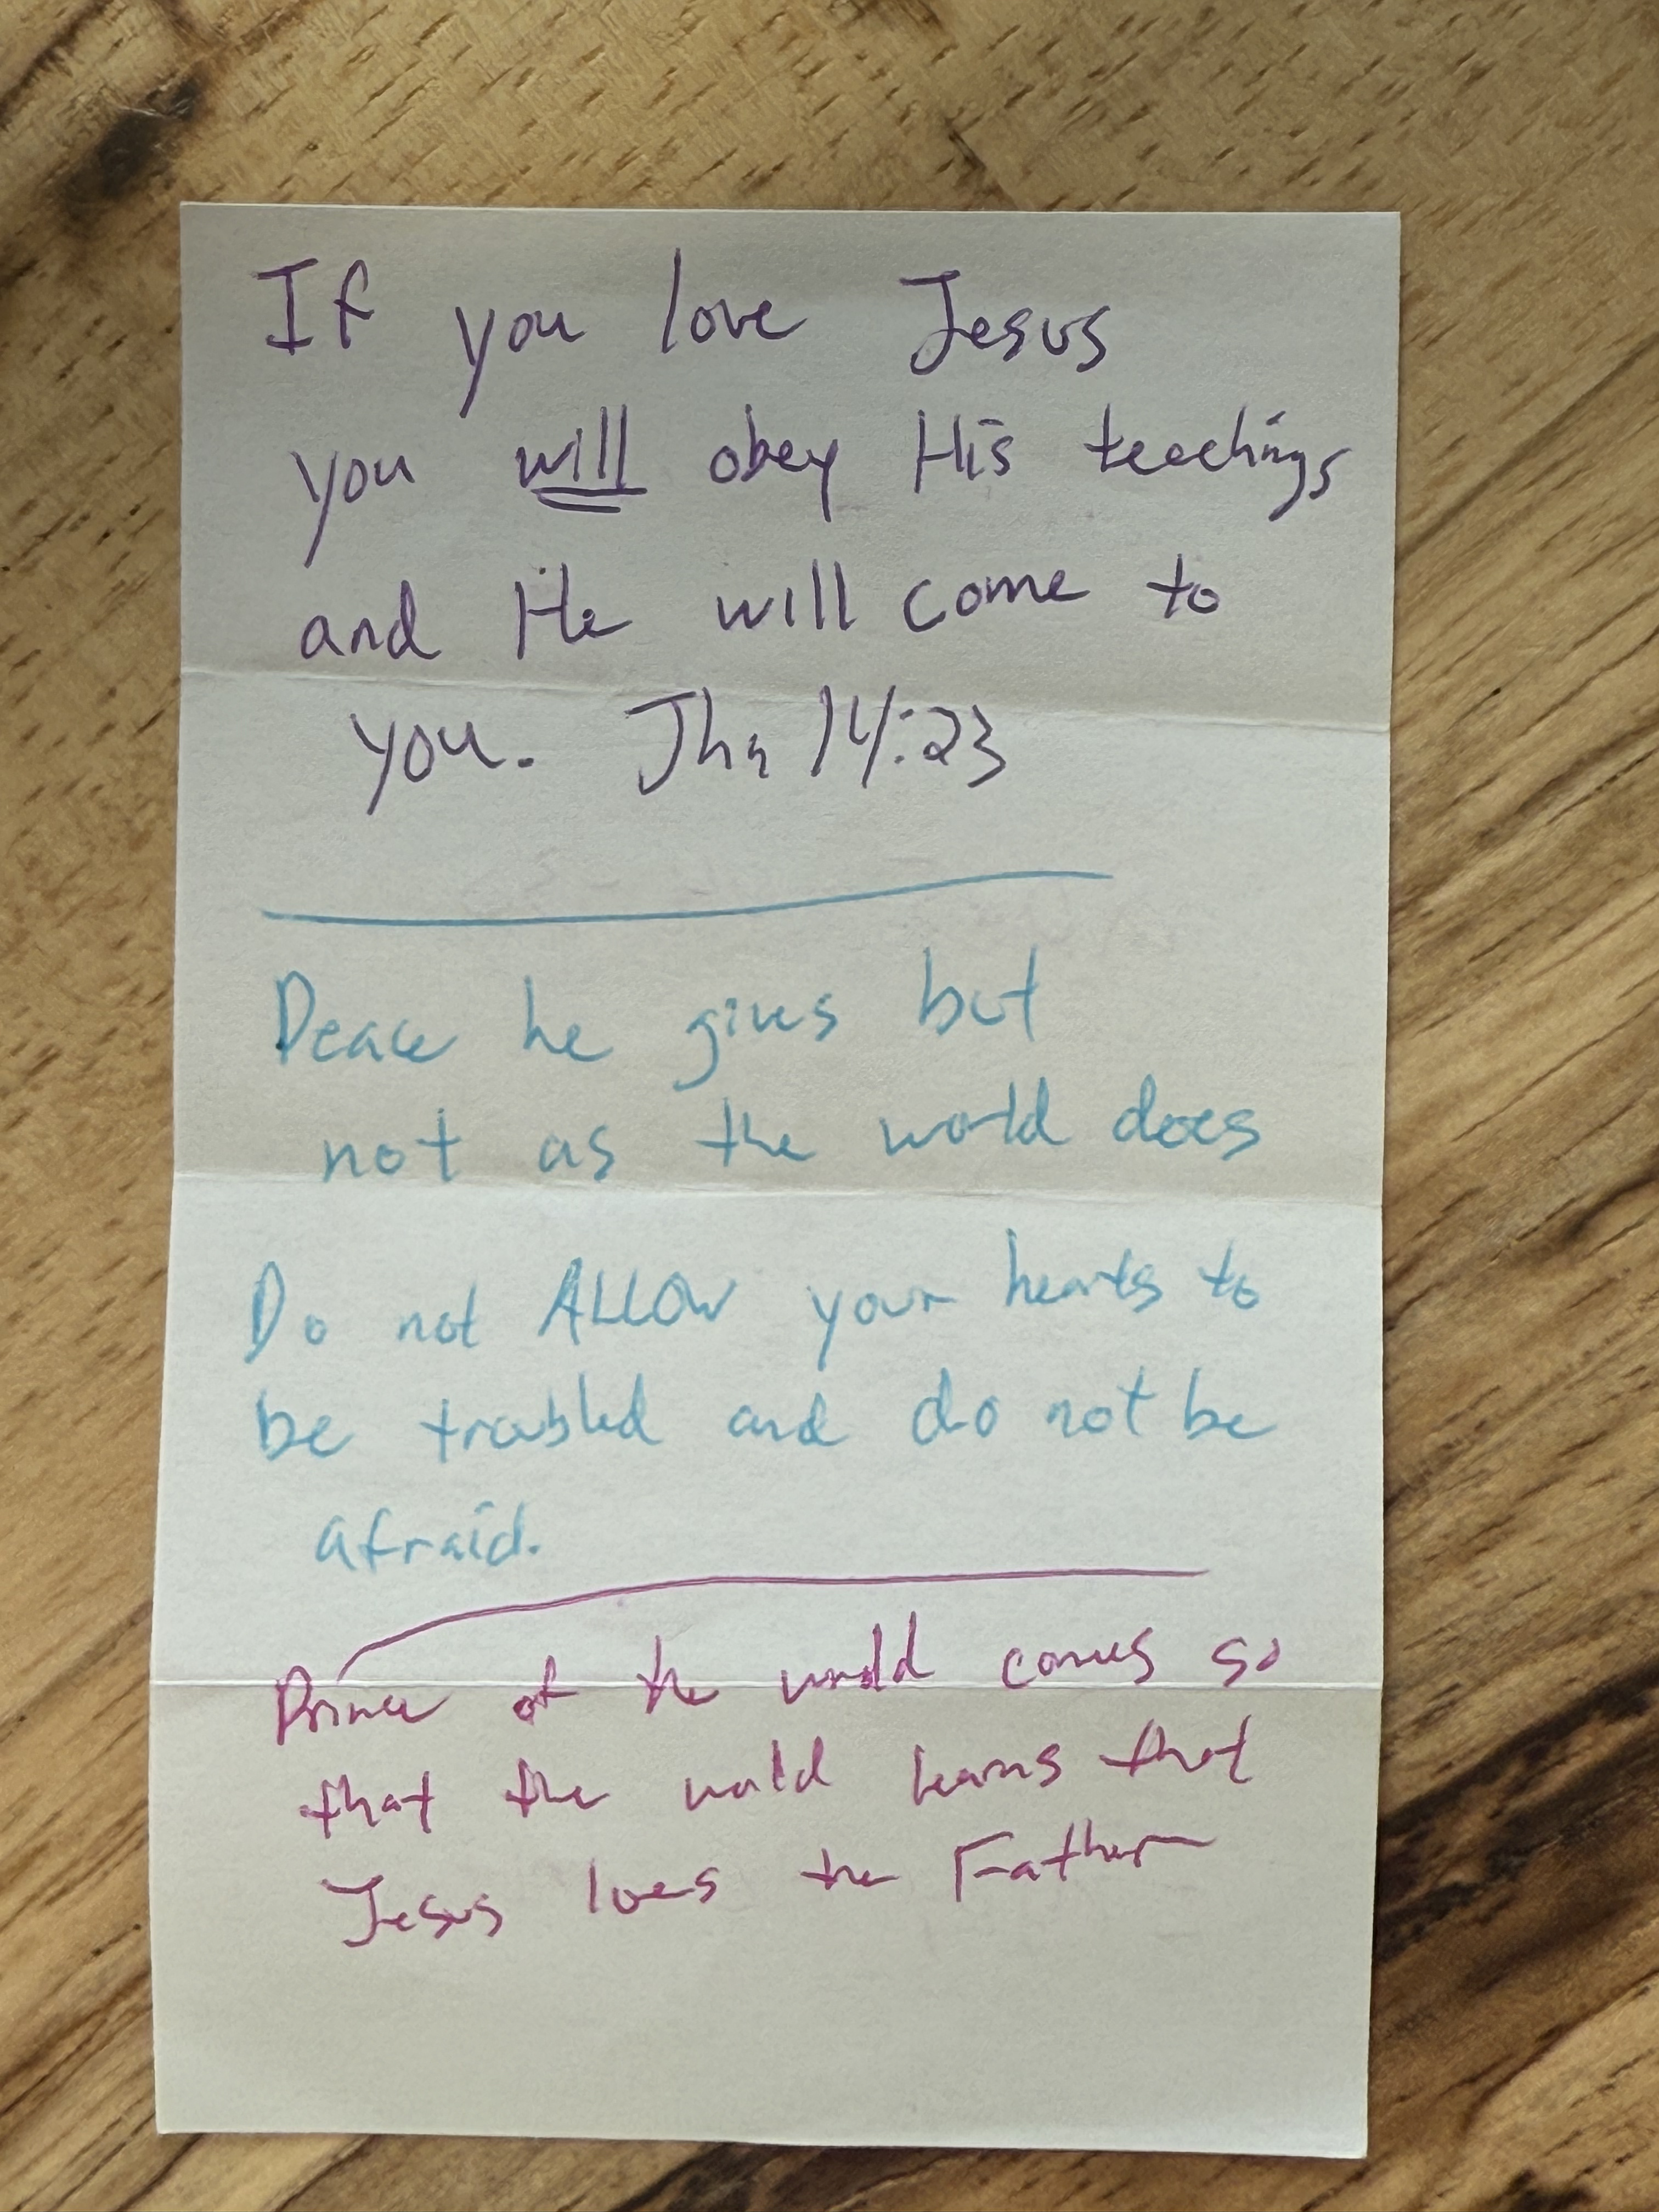 If you love Jesus
you will obey His teachings
and He will come to
you. Jhn 14:23
Peace he gives but
not as the world does
Do not ALLOW your hearts to
be troubled and do not be
afraid.
Prince of the world comes so
that the world learns that
Jesus loves the Father